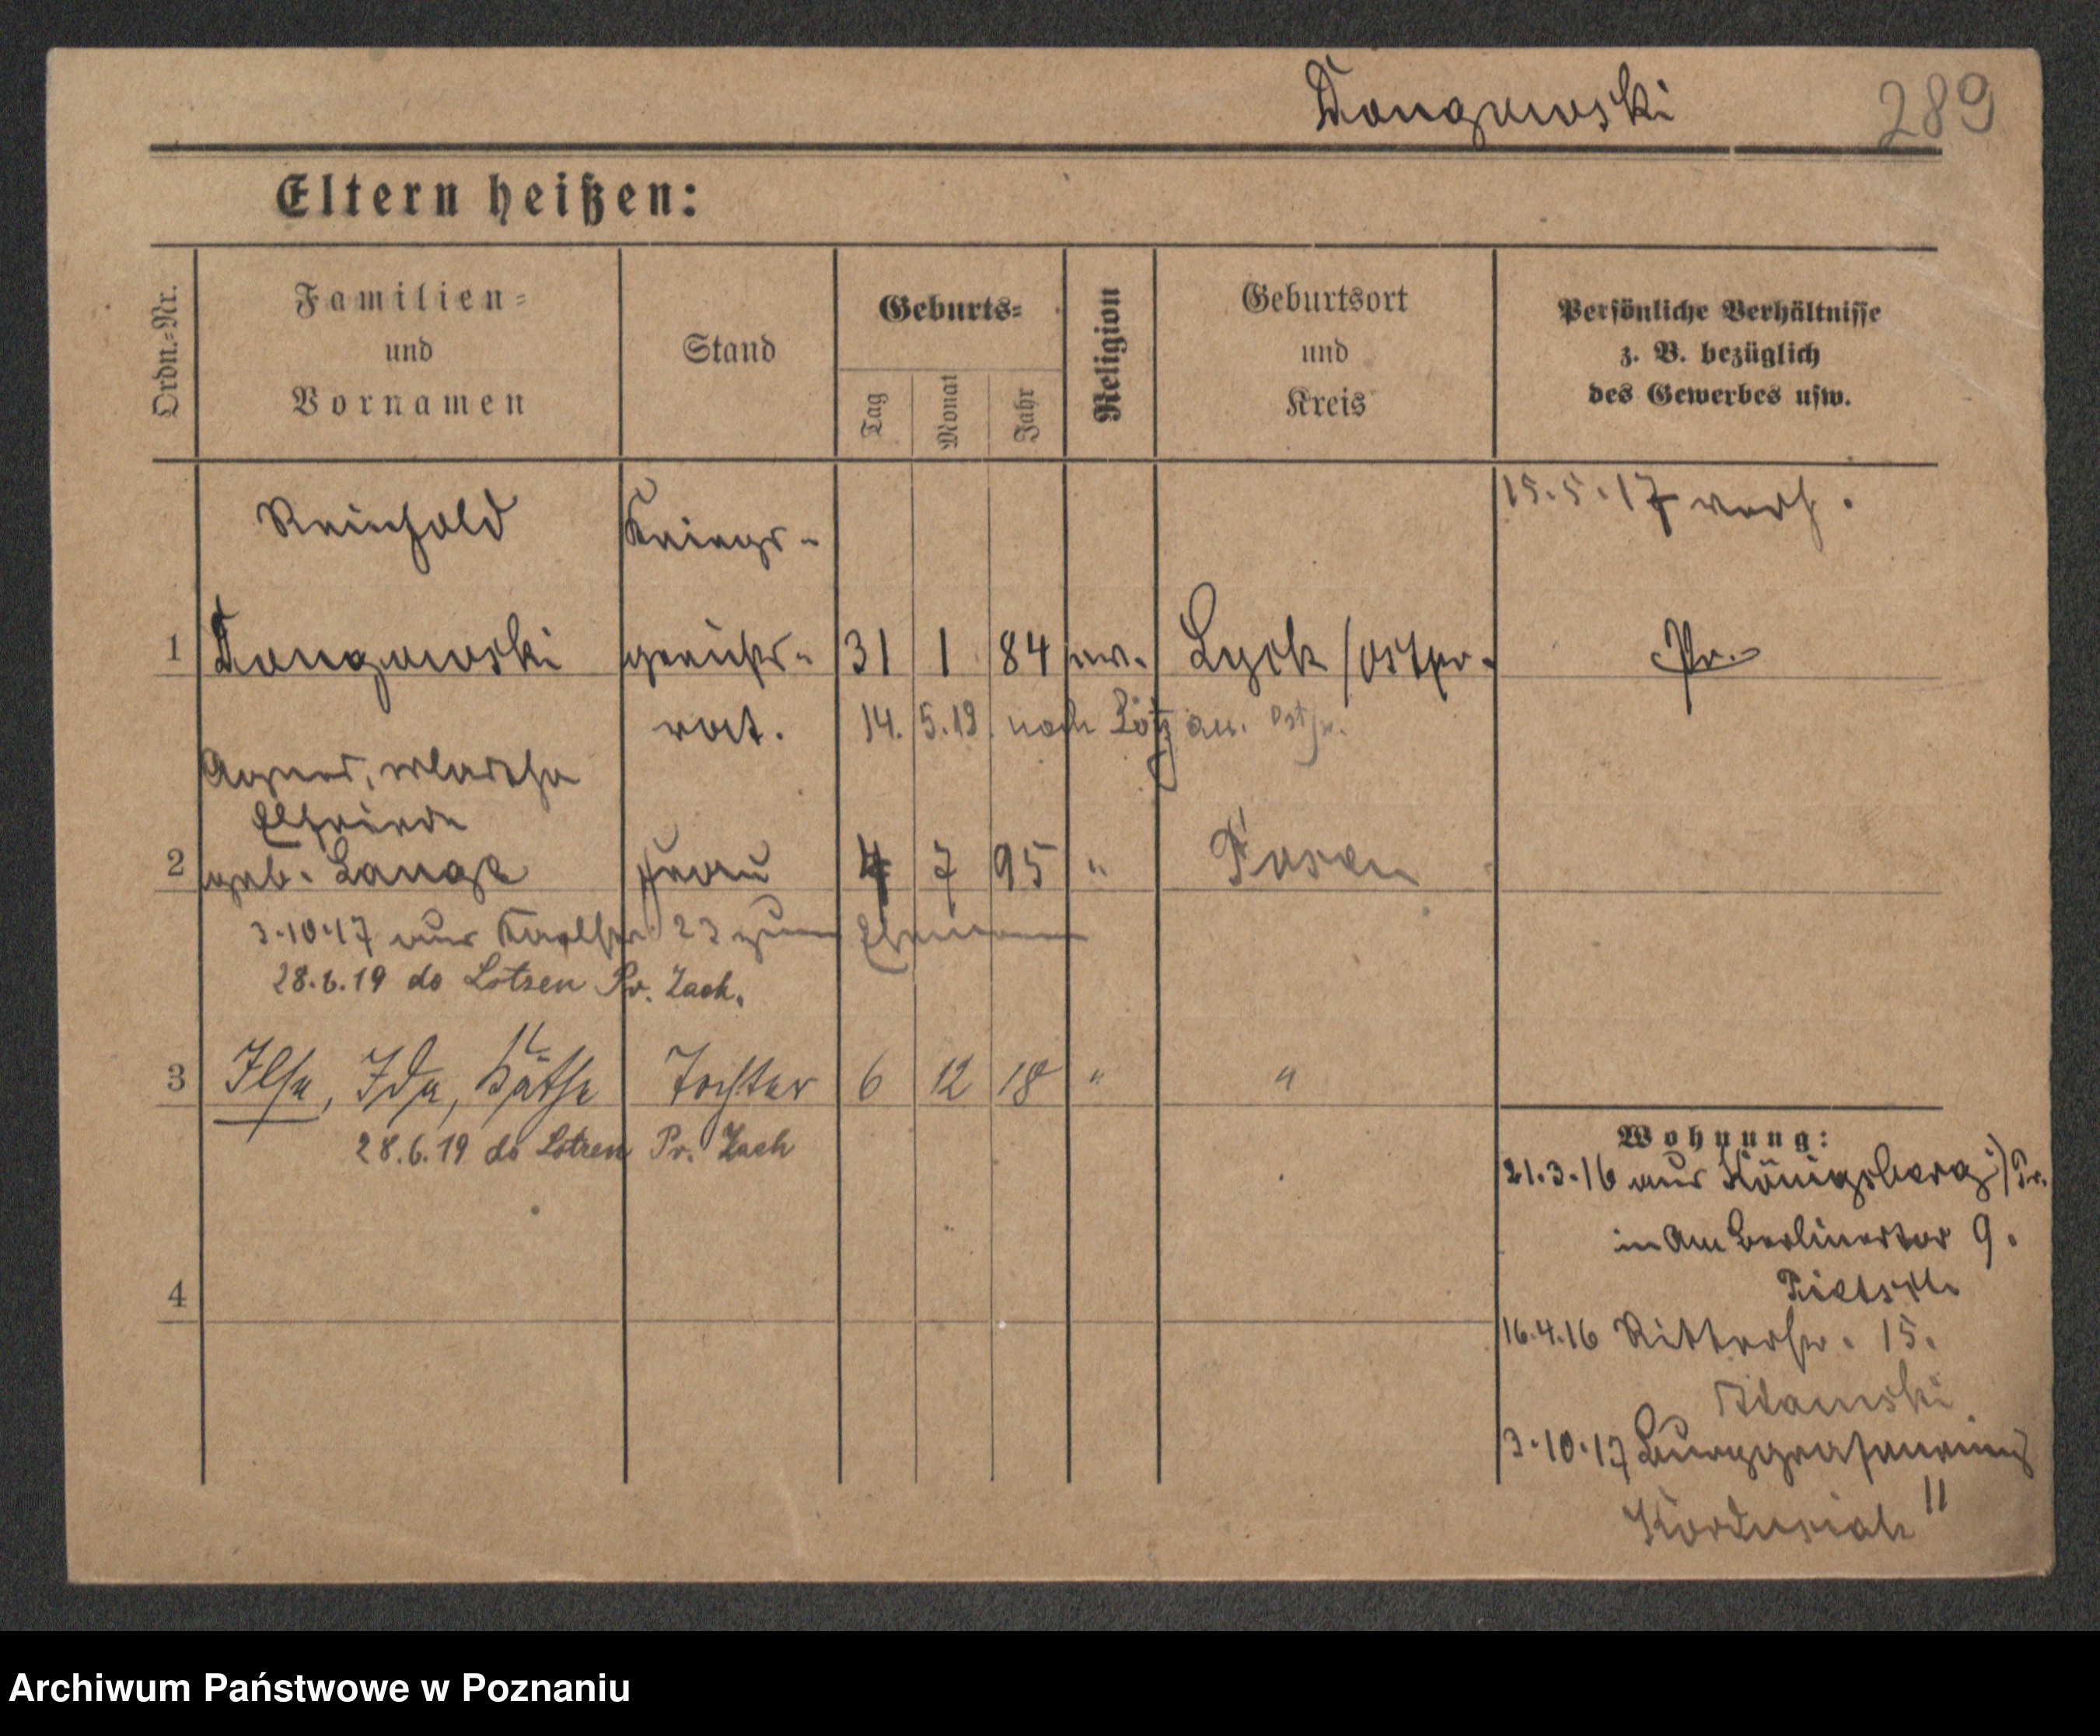 Dongowski 289
Eltern heißen:
Ordn.=Nr.
Familien=
und
Vornamen
Stand
Geburts=
Tag
Monat
Jahr
Religion
Geburtsort
und
Kreis
Persönliche Verhältnisse
z. B. bezüglich
des Gewerbes usw.
15.5.17 verh.
Reinhold Kriegs-
1 Dongowski gerichts- 31 1 84 ev. Lyck / Ostpr. Pr.
14. 5. 19. nach Lötzen. Ostpr.
Agnes, Martha
Elfriede
2 geb. Lange Frau 4 7 95 " Posen
3.10.17 aus 23 zum Ehemann
28.6.19 do Lotzen Pr. Zach.
3 Ilse, Ida, Käthe Tochter 6 12 18 " "
28.6.19 do Lotzen Pr. Zach
Wohnung:
21.3.16 aus Königsberg / Pr.
in Am Berlinertor 9.
Pietsch
4
16.4.16 Ritterstr. 15.
Adamski
3.10.17 Burggrafenring
11
Archiwum Państwowe w Poznaniu